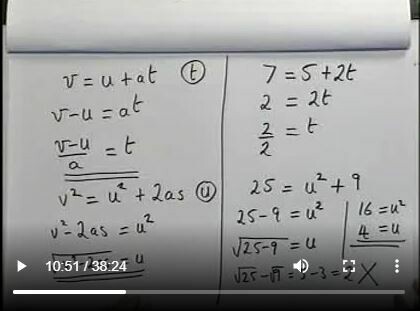 v = u + at (t)
v-u = at
v-u/a = t
v² = u² + 2as (u)
v²-2as = u²
= u
7 = 5+2t
2 = 2t
2/2 = t
25 = u² + 9
25-9 = u²
√25-9 = u
√25-√9 = 5-3 = 2 X
16 = u²
4 = u
10:51 / 38:24